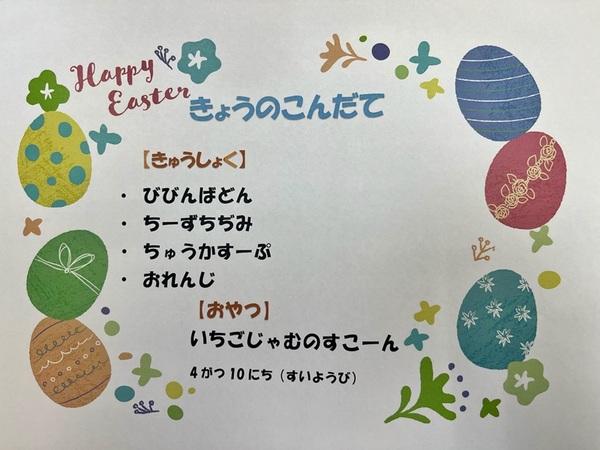 Happy
Easter
きょうのこんだて
【きゅうしょく】
・ びびんばどん
・ ちーずちぢみ
・ ちゅうかすーぷ
・ おれんじ
【おやつ】
いちごじゃむのすこーん
4がつ10にち（すいようび）